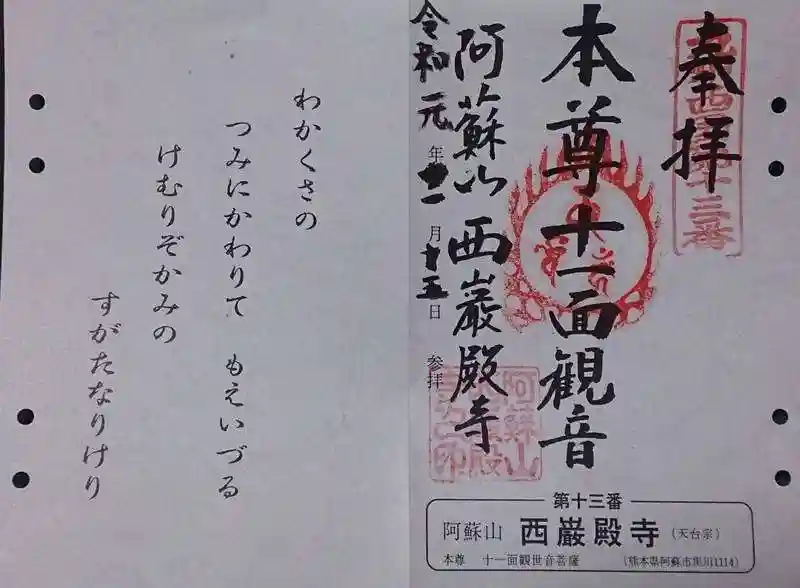 奉拝
本尊十一面観音
阿蘇山西巌殿寺
令和元年十一月十五日 参拝
阿蘇山
第十三番
阿蘇山 西巌殿寺（天台宗）
本尊 十一面観世音菩薩 （熊本県阿蘇市黒川1114）
わかくさの
つみにかわりて もえいづる
けむりぞかみの
すがたなりけり